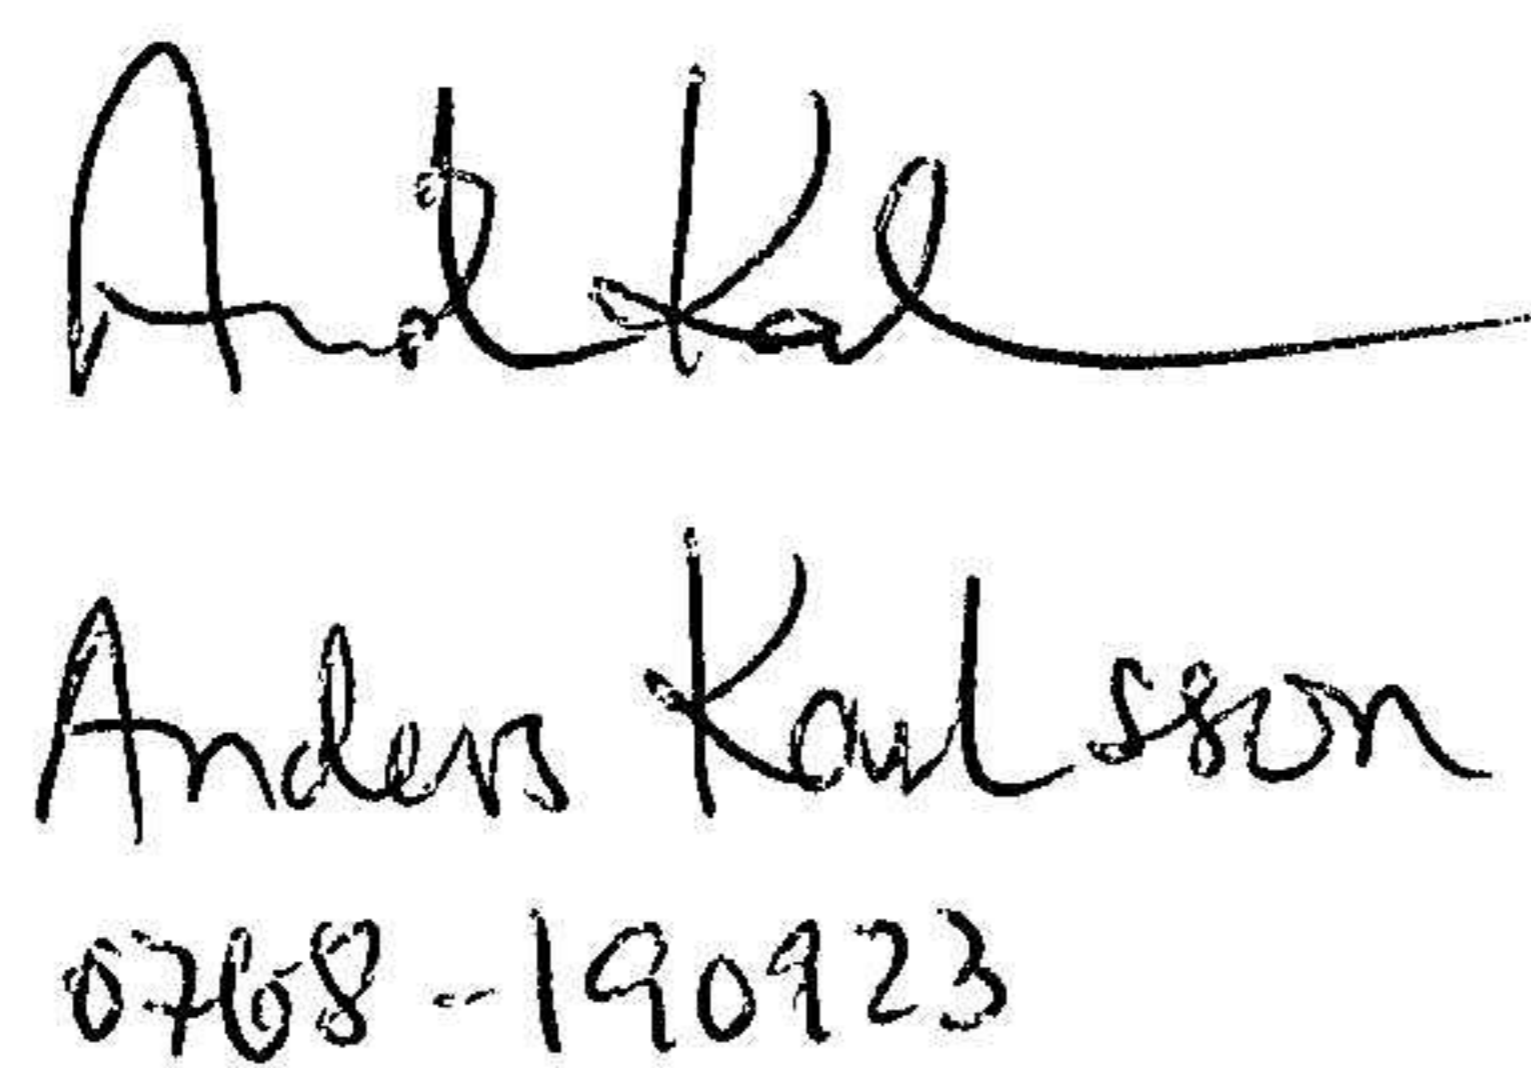 And Kal
Anders Karlsson
0768-190923